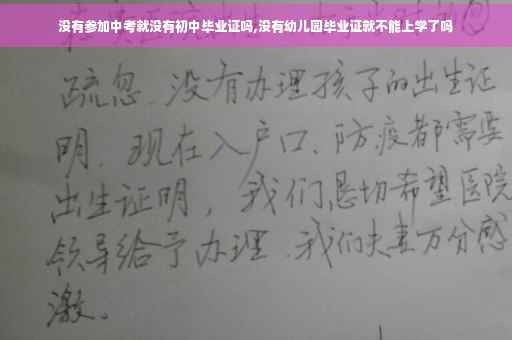 没有参加中考就没有初中毕业证吗,没有幼儿园毕业证就不能上学了吗
疏忽、没有办理孩子的出生证
明、现在入户口、防疫都需要
出生证明，我们恳切希望医院
领导给予办理、我们夫妻万分感
激。